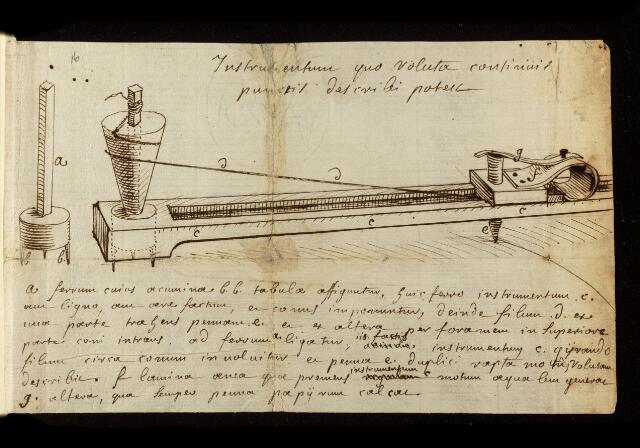 16
Instrumentum quo Voluta continuis
punctis describi potest
a
d
d
g
c
c
c
e
b
b
a ferrum cuius acumina b.b. tabulæ affiguntur, huic ferro instrumentum c.
aut ligno, aut ære factum, et conus imponuntur, deinde filum d. ex
una parte trahens pennam e. et ex altera per foramen in superiore
parte coni intrans. ad ferrum a ligatur, iis factis
deinde instrumentum c. gyrando
filum circa conum involuitur et penna e. duplici rapta motu, Volutam
describit. f lamina ærea quæ premens instrumentum c motum æqualem generat
g. altera, qua semper penna papyrum calcat